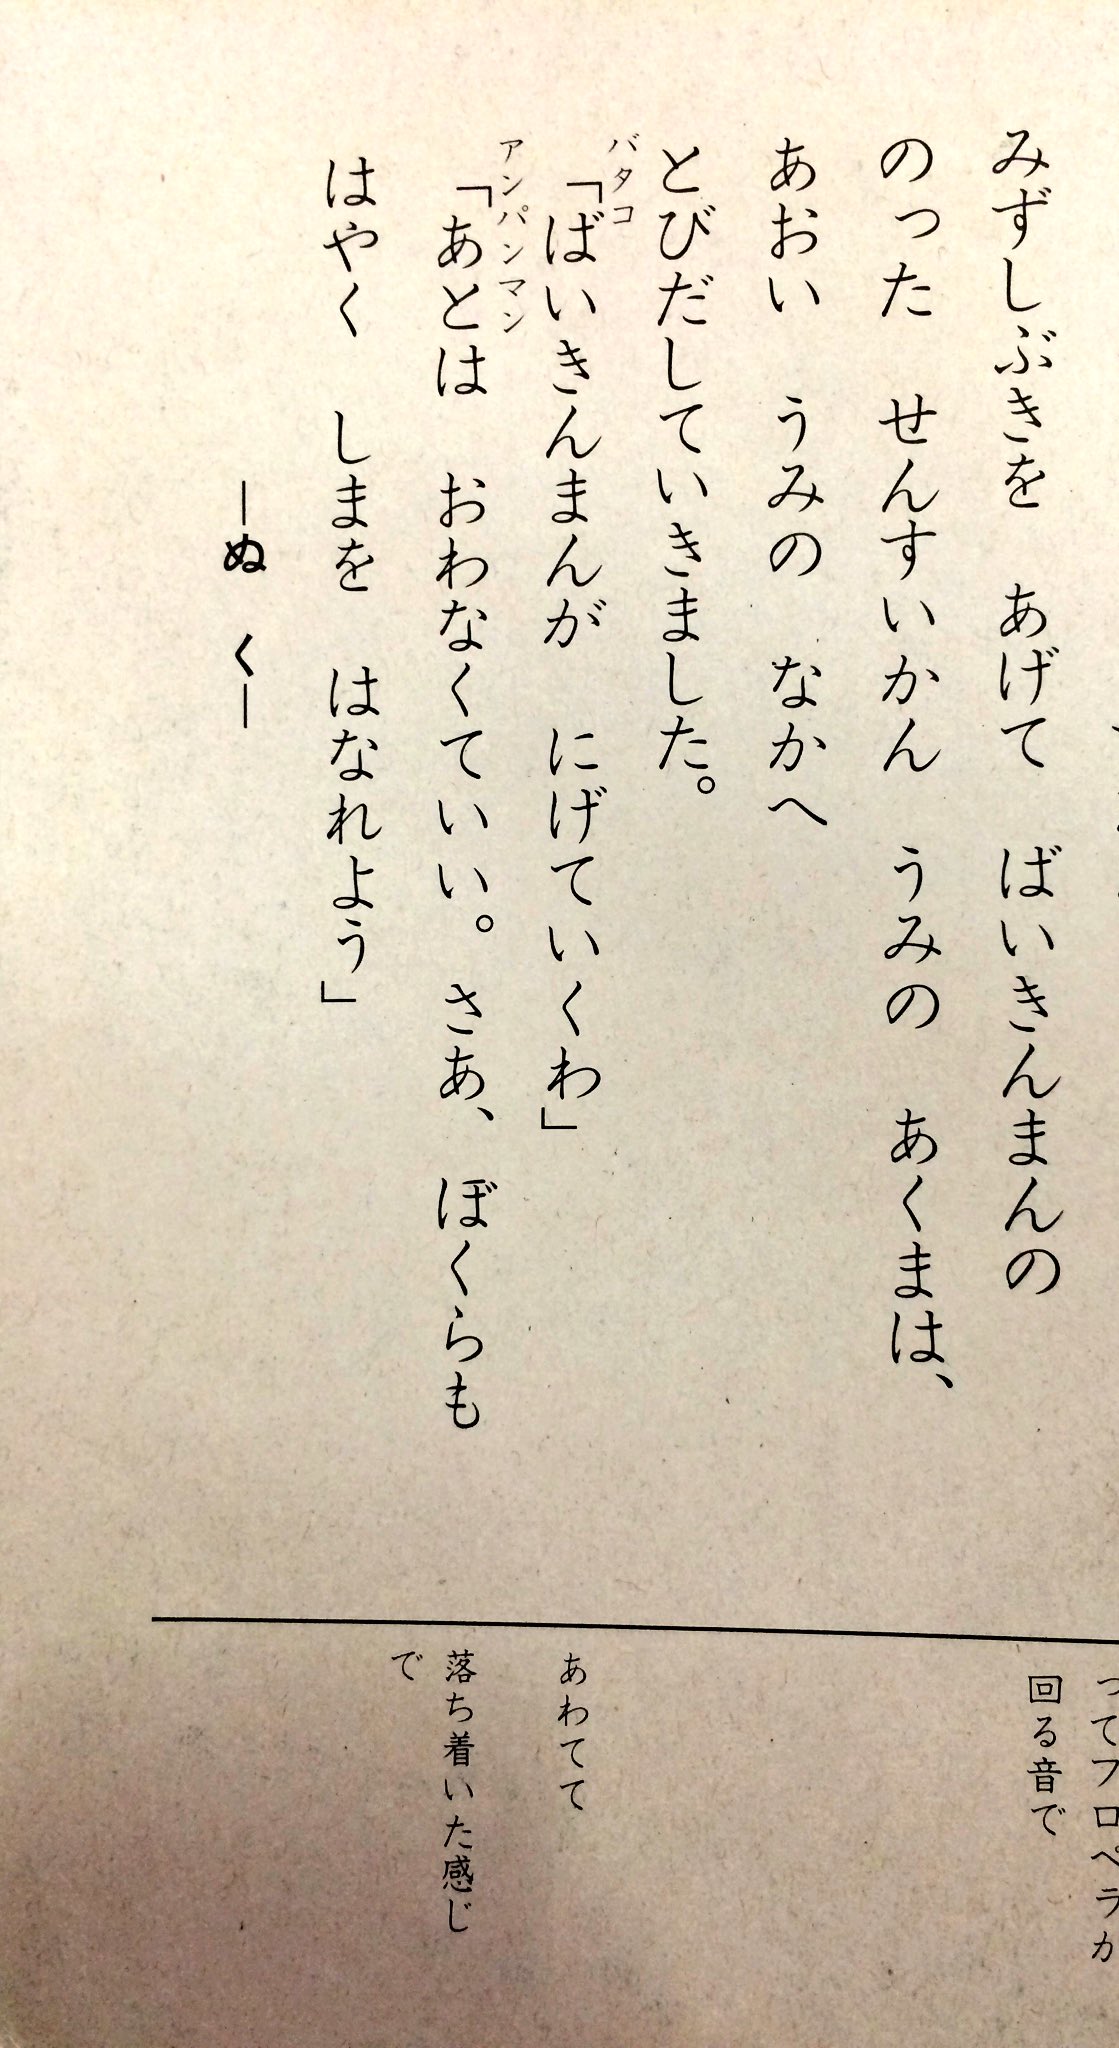 みずしぶきを　あげて　ばいきんまんの
のった　せんすいかん　うみの　あくまは、
あおい　うみの　なかへ
とびだしていきました。
バタコ
「ばいきんまんが　にげていくわ」
アンパンマン
「あとは　おわなくていい。さあ、ぼくらも
はやく　しまを　はなれよう」
―ぬ　く―
ってプロペラが
回る音で
あわてて
落ち着いた感じ
で